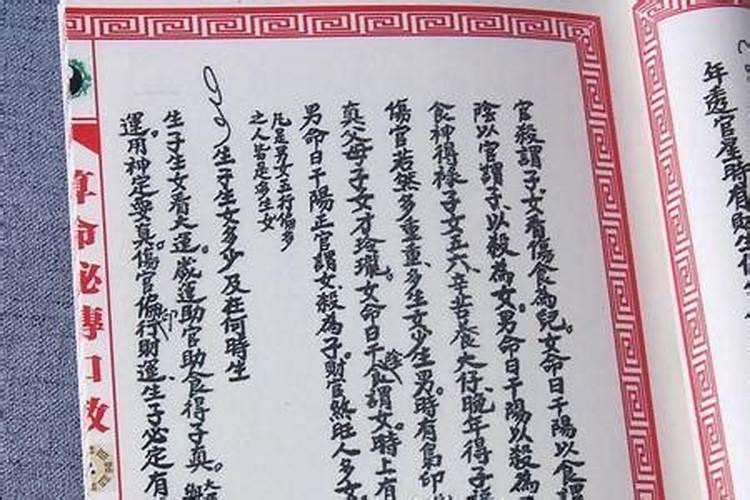 年透官星時有財生
官殺謂子女看傷食為兒。女命日干陽以食謂
陰以官謂子。以殺為女。男命日干陽以殺為
食神得祿子女五六。辛苦養大仔。晚年得子
傷官若然多重重。多生女少生男。時有梟印
真父母子女才玲瓏。女命日干陰食謂女。時上有
男命日干陽正官謂女。殺為子。財官煞旺人多女
凡是男女五行偏多
之人皆是多生女
生子生女多少及在何時生
生子生女看大運。歲運助官助食得子真。
運用神定要真。傷官偏印行財運。生子必定有
算命秘傳口放